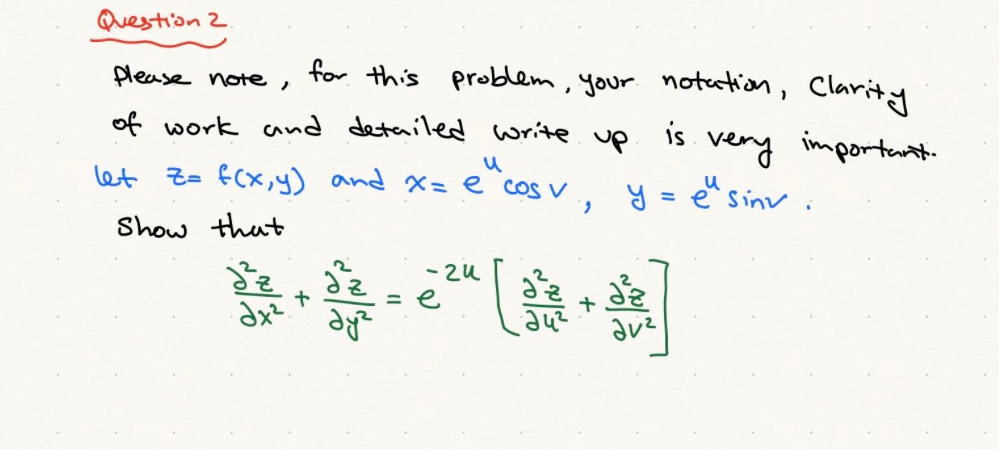 Question 2
Please note, for this problem, your notation, Clarity
of work and detailed write up is very important.
let z = f(x,y) and x = e^u cos v, y = e^u sin v.
Show that
∂²z/∂x² + ∂²z/∂y² = e^{-2u} [ ∂²z/∂u² + ∂²z/∂v² ]